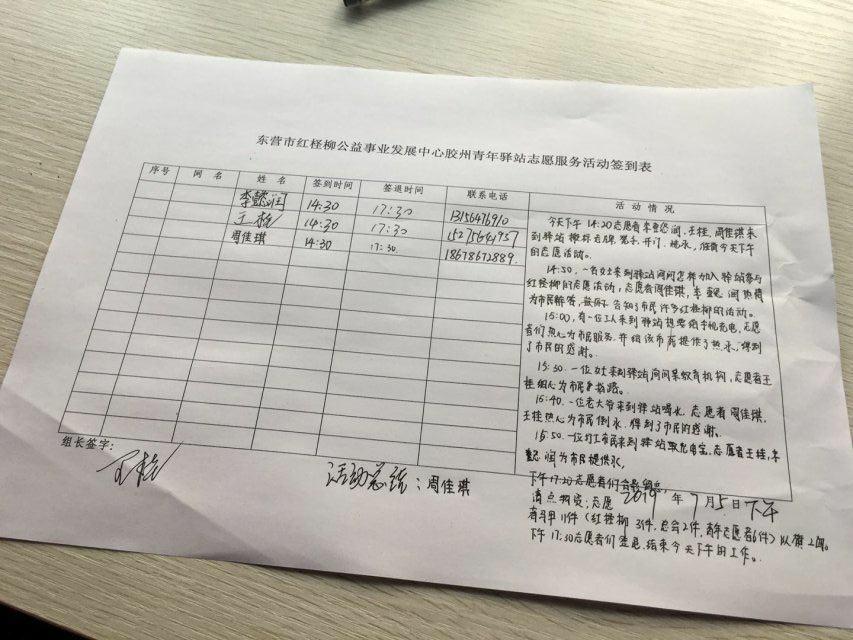 东营市红柽柳公益事业发展中心胶州青年驿站志愿服务活动签到表
序号 网名 姓名 签到时间 签退时间 联系电话 活动情况
李懿润 14:30 17:30 13156476910
王桂 14:30 17:30
周佳琪 14:30 17:30 18678672889
今天下午14:20志愿者李懿润、王桂、周佳琪来
到驿站 开门、烧水,准备今天下午
的志愿活动。
14:50,一名女士来到驿站询问怎样加入驿站参与
红柽柳的志愿活动,志愿者周佳琪,李懿润热情
为市民解答,并告知了市民许多红柽柳的活动。
15:00,有一位工人来到驿站想要给手机充电,志愿
者们热心为市民服务,并给该市民提供了热水,得到
了市民的感谢。
15:30.一位女士来到驿站询问某教育机构,志愿者王
桂细心为市民指路。
16:40.一位老大爷来到驿站喝水,志愿者周佳琪,
王桂热心为市民倒水,得到了市民的感谢。
16:50.一位打工市民来到驿站取充电宝,志愿者王桂,李
懿润为市民提供水,
下午17:20志愿者们
清点物资:志愿
2019年7月5日下午
有马甲11件(红柽柳3件,总会2件,青年志愿者6件)以及旗2面。
下午17:30志愿者们签退,结束今天下午的工作。
组长签字:
王桂
活动总结:周佳琪